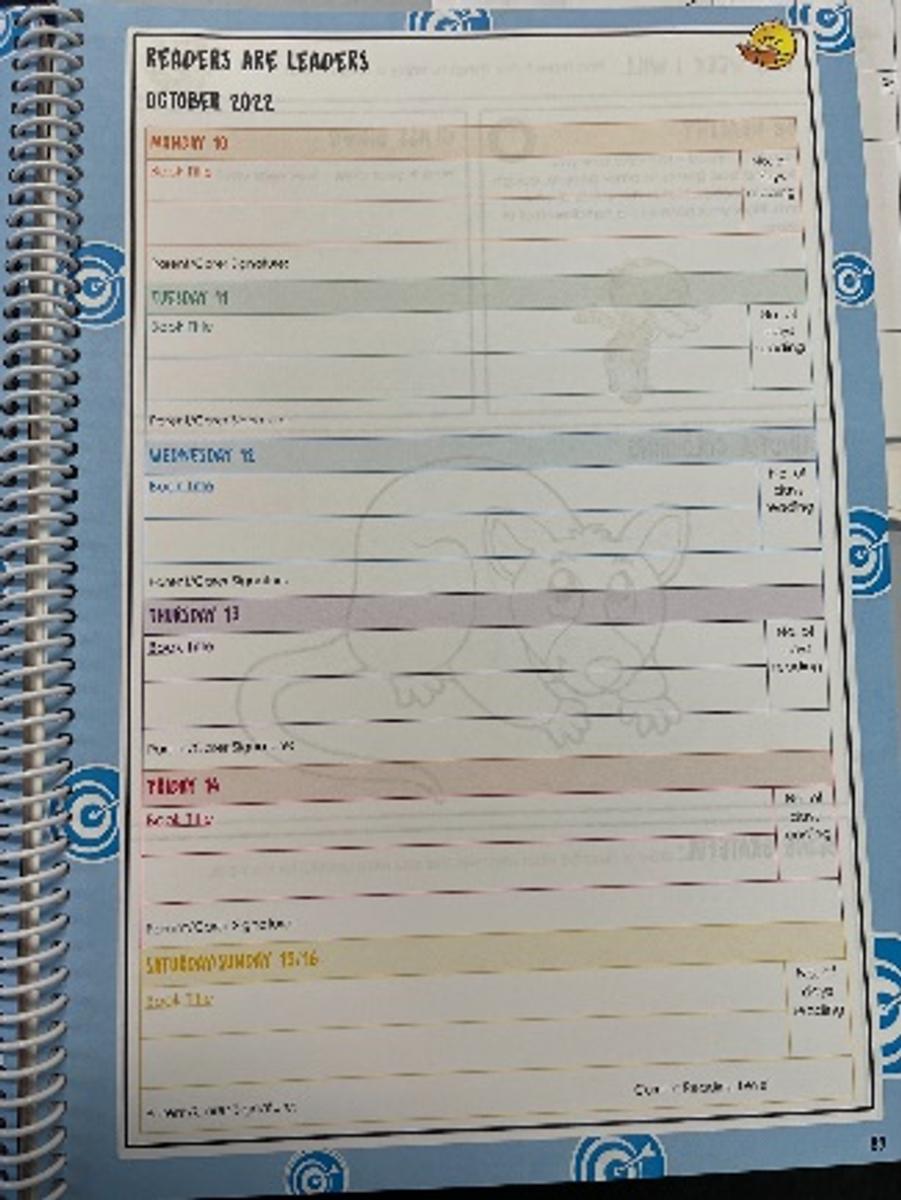 READERS ARE LEADERS
OCTOBER 2022
MONDAY 10
Book Title
No. of
days
reading
Parent/Carer Signature
TUESDAY 11
Book Title
No. of
days
reading
Parent/Carer Signature
WEDNESDAY 12
Book Title
No. of
days
reading
Parent/Carer Signature
THURSDAY 13
Book Title
No. of
days
reading
Parent/Carer Signature
FRIDAY 14
Book Title
No. of
days
reading
Parent/Carer Signature
SATURDAY/SUNDAY 15/16
Book Title
No. of
days
reading
Current Reading Level
Parent/Carer Signature